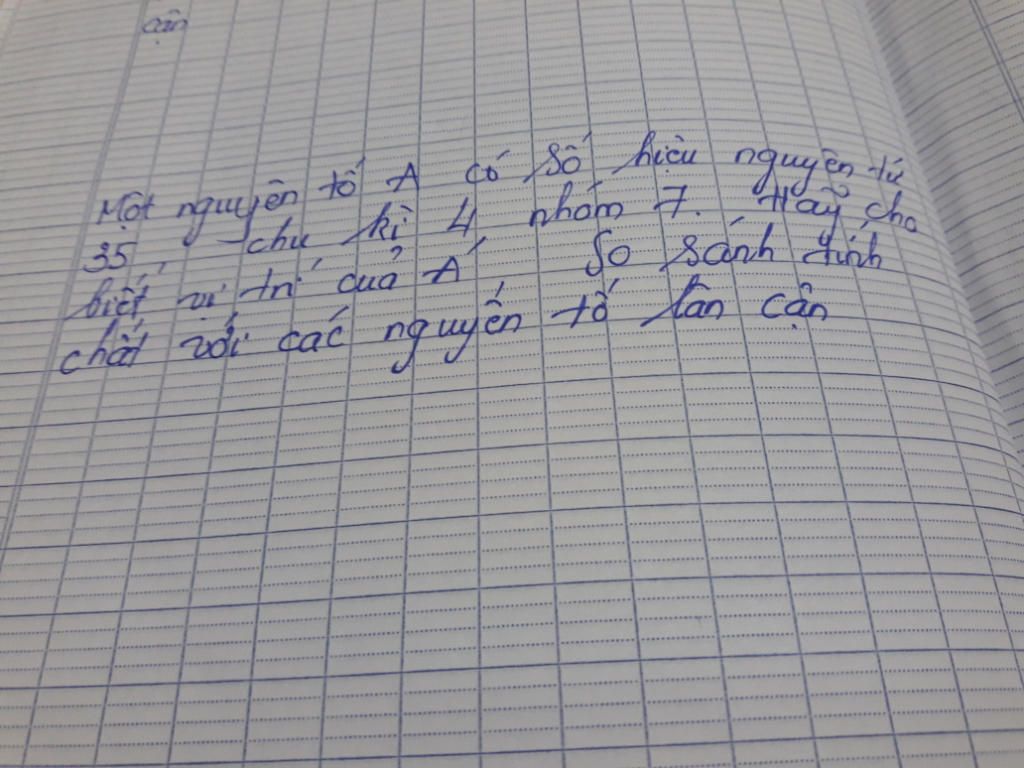 cận
Một nguyên tố A có số hiệu nguyên tử
35, chu kì 4 nhóm 7. Hãy cho
biết vị trí của A So sánh tính
chất với các nguyến tố lân cận